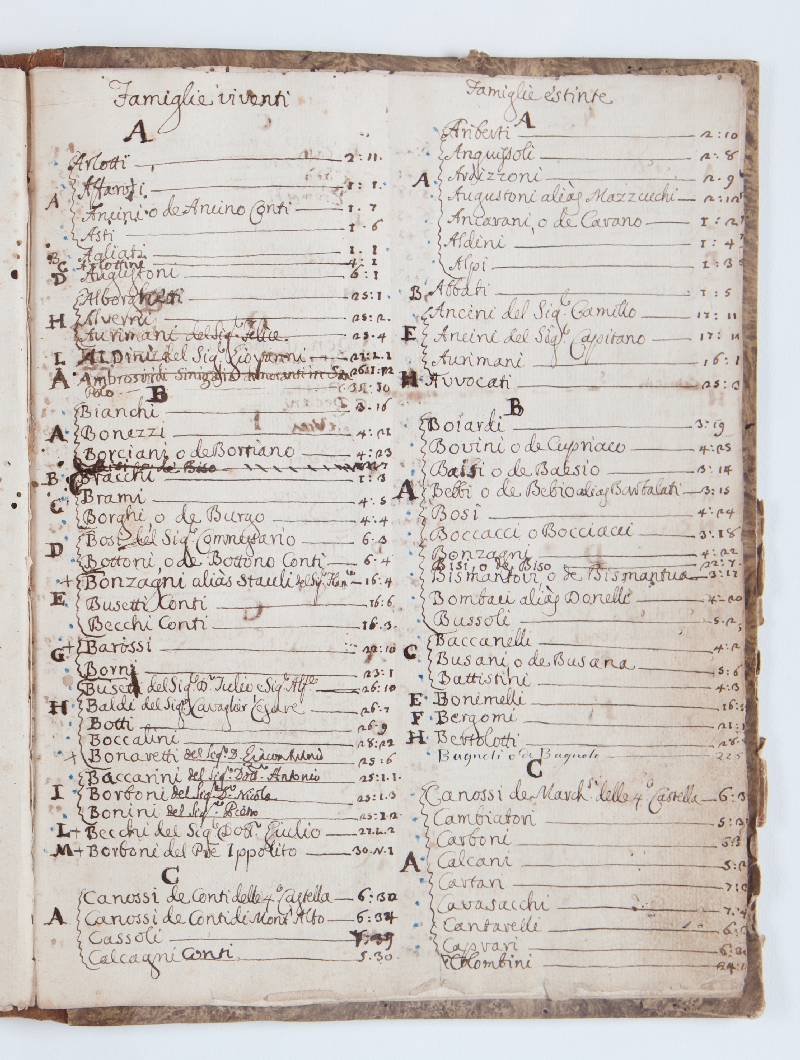 Famiglie viventi
A
Arlotti 2:11.
Affarosi 1:1.
A
Ancini o de Ancino Conti 1.7
Asti 1.6
B Agliati 1.1
C Arlottini 4:1
D Augustoni 6:1
Alborghetti 25:1
H Alverni 25:2.
Aurimani del Sig.r Felice 25.4
L ALDini del Sig.r Giovanni 27.L.1
A Ambrosi di Sinigalia
Polo
B
Bianchi 3.16
A Bonezzi 4:21
Borciani o de Borziano 4:23
B Bracchi 1:3
Brami 4:5
C
Borghi o de Burgo 4:4
Bosi del Sig.r Commissario 6.3
D
Bottoni, o de Bottono Conti 6.4
+ Bonzagni aliàs Stauli 16:4
E
Busetti Conti 16:6
Becchi Conti 16.3
G + Barossi 22:10
Borni 23:1
Busetti del Sig.r D.r Tulio e Sig.r 26:10
H Baldi del Sig.r Cavaglier Cesare 26:7
Botti 26.9
Boccalini 28:22
+ Bonavetti del Sig.r D. 25:6
Baccarini del Sig.r Dott.r Antonio 25:1.1.
I Borboni del Sig.r D.r Nicola 25:1.3
Bonini del Sig.r Pietro 25:1.2
L + Becchi del Sig.r Dot.r Giulio 27.L.2
M + Borboni del Pre Ippolito 30.N.1
C
Canossi de Conti delle 4.o Castella 6:32
A Canossi de Conti di Mont'Alto 6:34
Cassoli
Calcagni Conti 5.30
Famiglie estinte
A
Ariberti 2:10
Anguissoli 2.8
A Ardizzoni 2.9
Augustoni aliàs Mazzucchi 2:12
Ancarani, o de Cavano 1:2
Aldini 1:4
Alpi 1:3
B Abbati 1:5
Ancini del Sig.r Camillo 17:11
E Ancini del Sig.r Capitano 17:11
Aurimani 16:1
H Avvocati 25:3
B
Boiardi 3:19
Bovini o de Cupriaco 4:25
Baisi o de Baesio 3:14
A Bebbi o de Bebio aliàs Bartalati 3:15
Bosi 4:24
Boccacci o Bocciacci 3:18
Bonzagni 4:22
Bisi, o de Biso 22:7.
Bismantovi, o de Bismantua 3:17
Bombaci aliàs Donelli 4:20
Bussoli 5.2
Baccanelli 4:2
C Busani o de Busana 5:6
Battistini 4:3
E Bonimelli 16:5
F Bergomi 21:1
H Bertolotti 28:
Bagnoli o de Bagnolo 22.5
C
Canossi de March.si delle 4.o Castella 6:3
Cambiatori 5:3
Carboni 5:3
A Calcani 5:2
Cartari 7:
Cavasacchi 7.
Cantarelli 6:
Caprari 6:3
Colombini 24:1